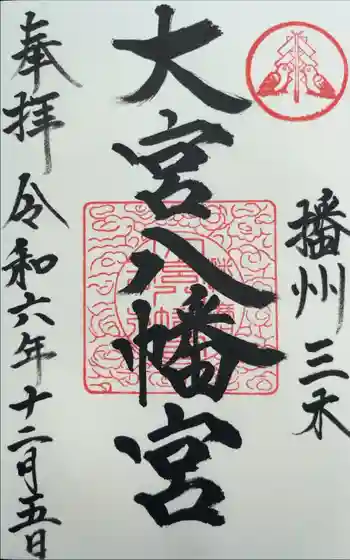 播州三木
大宮八幡宮
奉拝
令和六年十二月五日